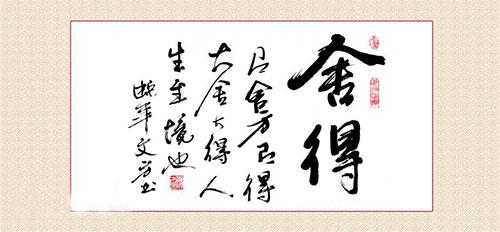 舍得
舍方得
大舍大得人
生至境也
年文书